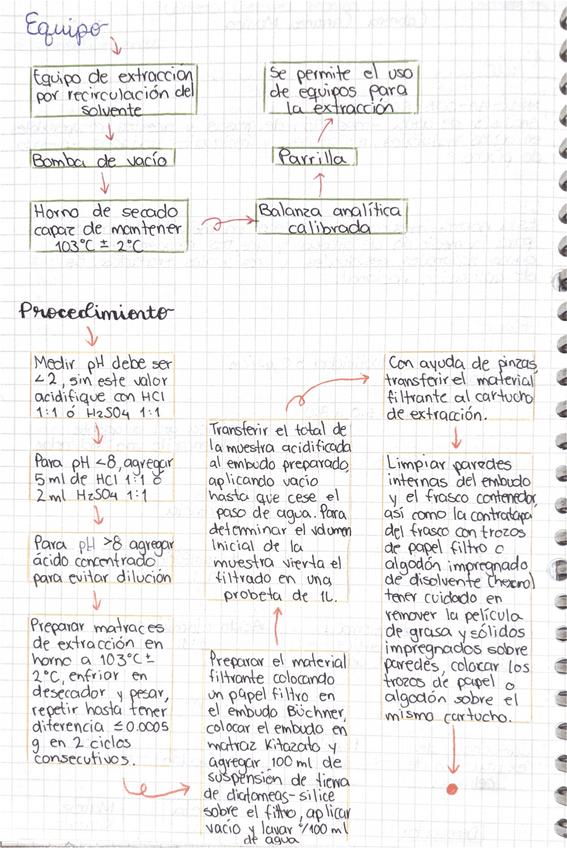 Equipo
Equipo de extracción
por recirculación del
solvente
Bomba de vacío
Horno de secado
capaz de mantener
103°C ± 2°C
Balanza analítica
calibrada
Parrilla
Se permite el uso
de equipos para
la extracción
Procedimiento
Medir pH debe ser
<2, sin este valor
acidifique con HCl
1:1 ó H2SO4 1:1
Para pH <8, agregar
5 ml de HCl 1:1 ó
2 ml H2SO4 1:1
Para pH >8 agregar
ácido concentrado
para evitar dilución
Preparar matraces
de extracción en
horno a 103°C ±
2°C, enfriar en
desecador y pesar,
repetir hasta tener
diferencia ≤0.0005
g en 2 ciclos
consecutivos.
Preparar el material
filtrante colocando
un papel filtro en
el embudo Büchner,
colocar el embudo en
matraz Kitazato y
agregar 100 ml de
suspensión de tierra
de diatomeas-sílice
sobre el filtro, aplicar
vacío y lavar c/100 ml
de agua
Transferir el total de
la muestra acidificada
al embudo preparado
aplicando vacío
hasta que cese el
paso de agua. Para
determinar el volumen
inicial de la
muestra vierta el
filtrado en una
probeta de 1L.
Con ayuda de pinzas,
transferir el material
filtrante al cartucho
de extracción.
Limpiar paredes
internas del embudo
y el frasco contenedor,
así como la contratapa
del frasco con trozos
de papel filtro o
algodón impregnado
de disolvente (hexano)
tener cuidado en
remover la película
de grasa y sólidos
impregnados sobre
paredes, colocar los
trozos de papel o
algodón sobre el
mismo cartucho.